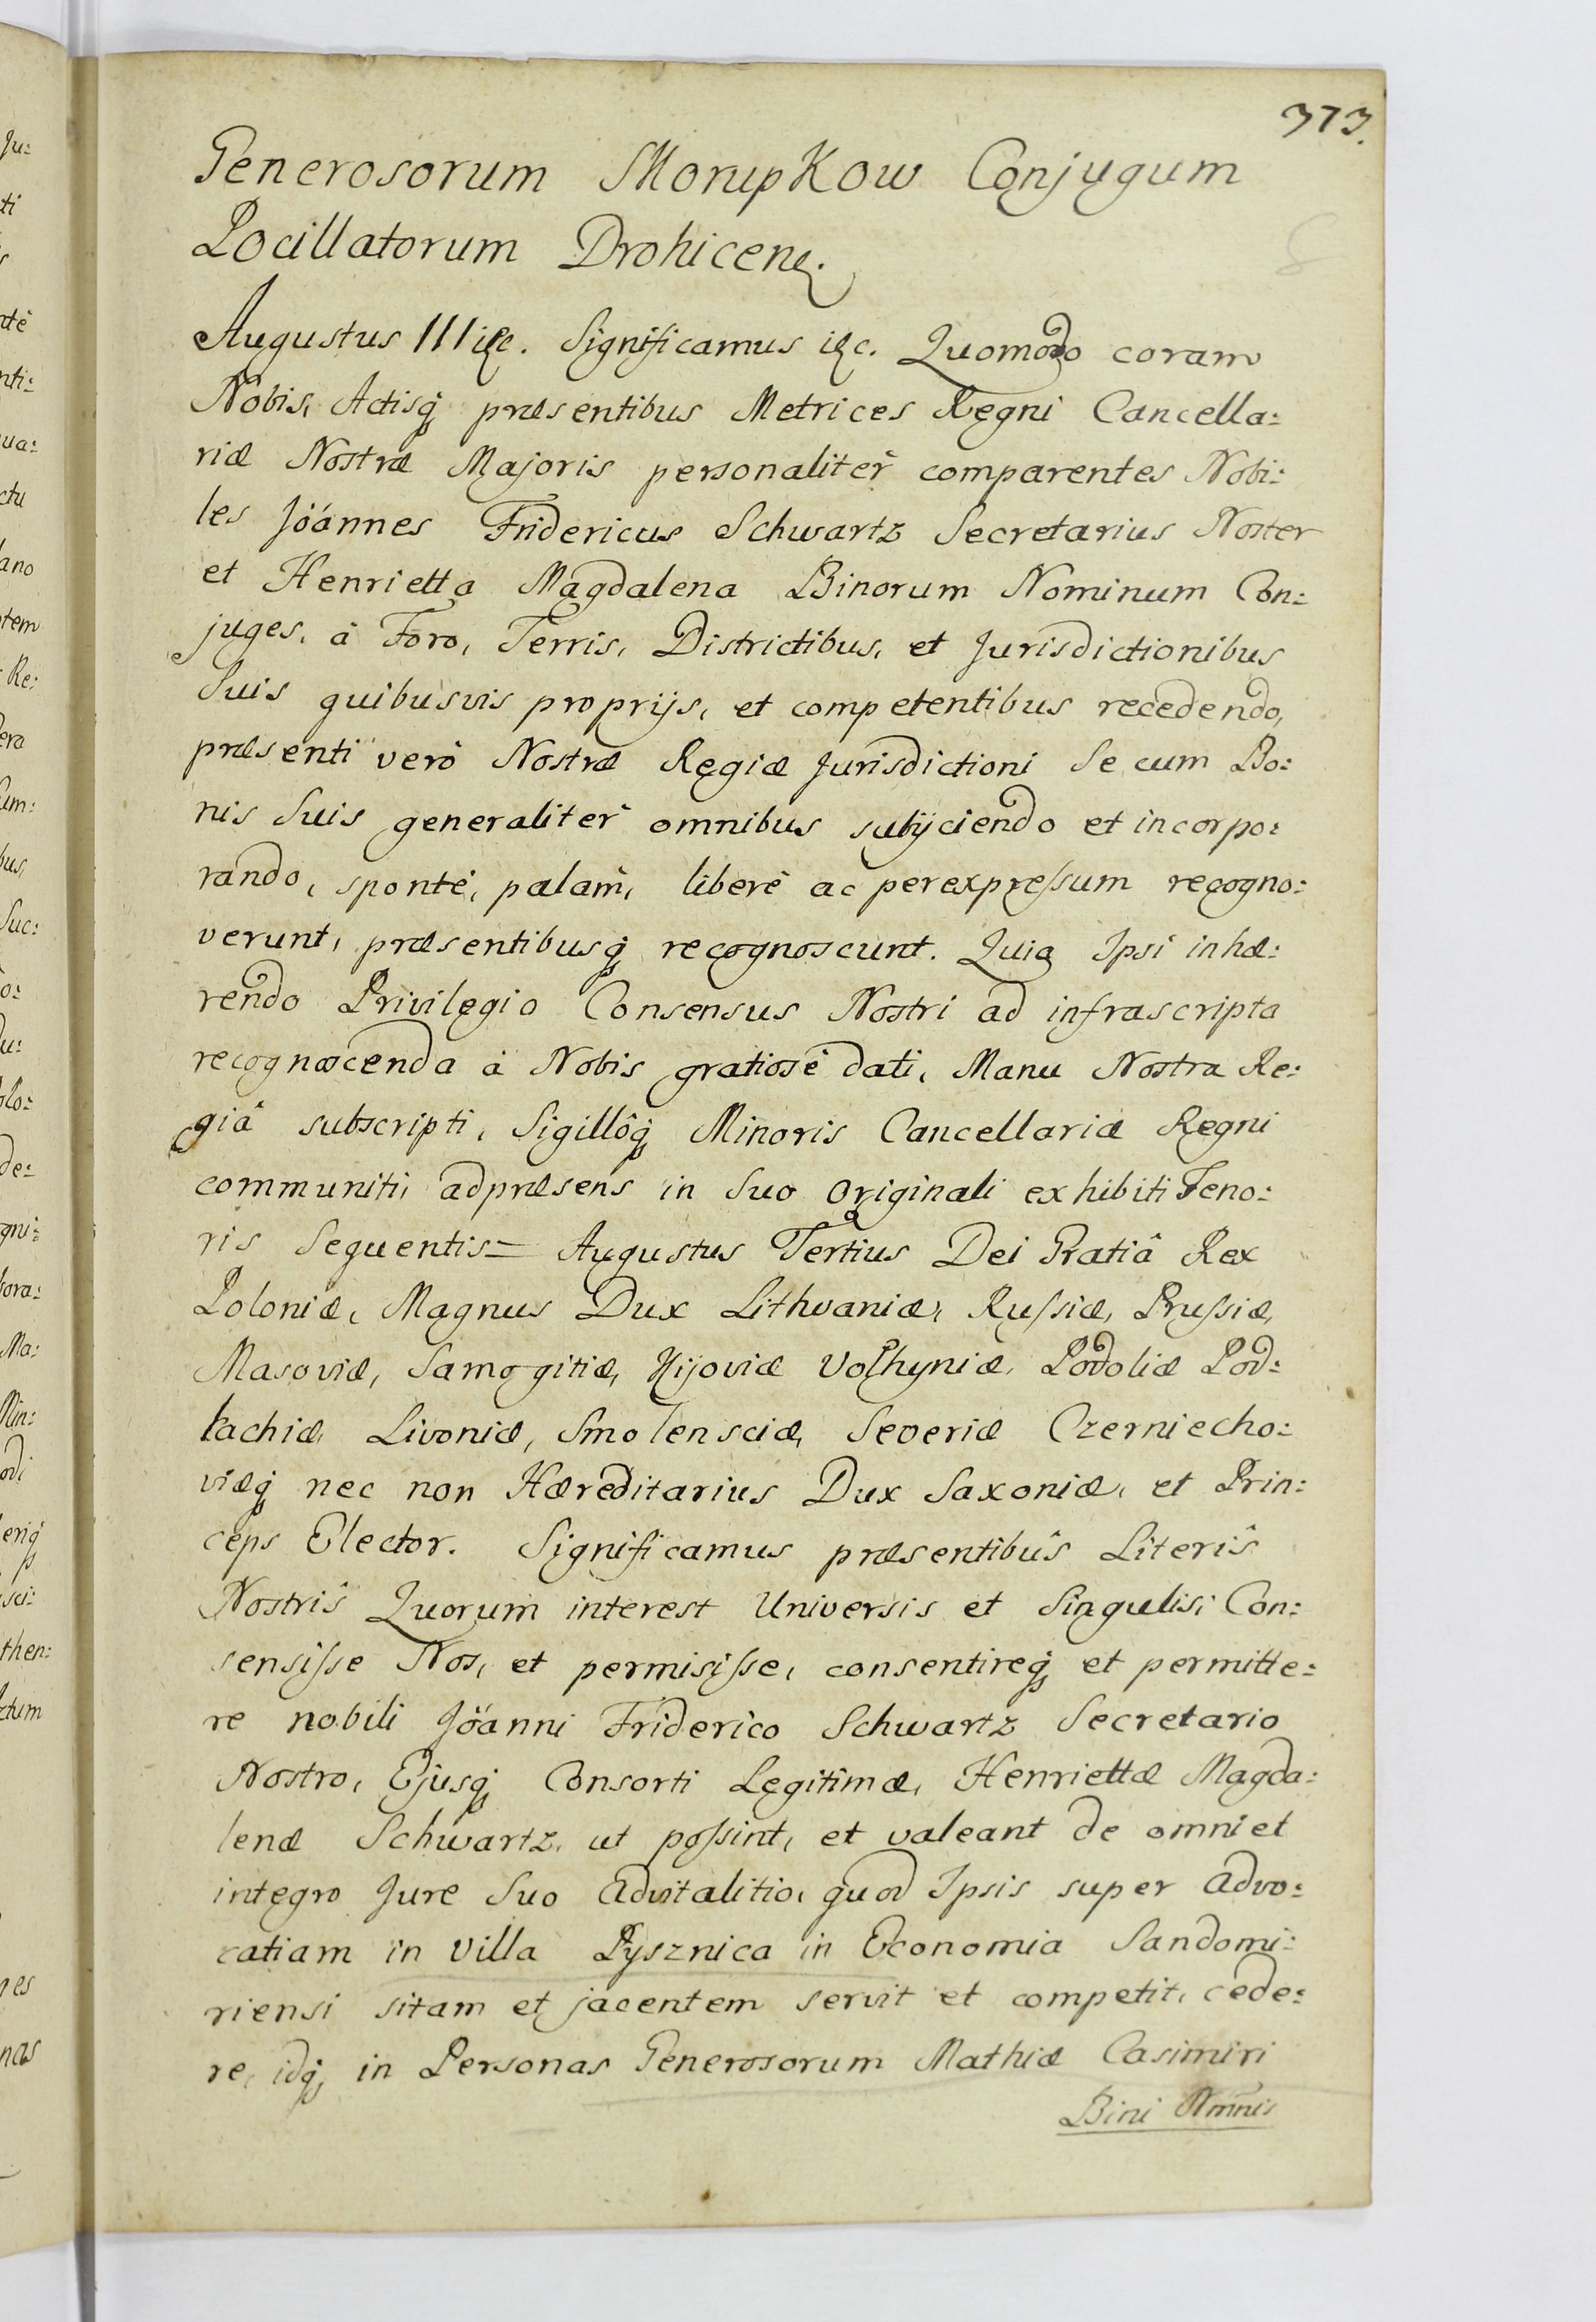 373.
Generosorum MorupKow Conjugum
Pocillatorum Drohicen.
Augustus III etc. Significamus etc. Quomodo coram
Nobis, Actisq́ præsentibus Metrices Regni Cancella:
riæ Nostræ Majoris personalitèr comparentes Nobi:
les Joánnes Fridericus Schwartz Secretarius Noster
et Henrietta Magdalena Binorum Nominum Con:
juges, à Foro, Terris, Districtibus, et Jurisdictionibus
Suis quibusvis proprijs, et competentibus recedendo,
præsenti verò Nostræ Regiæ Jurisdictioni Se cum Bo:
nis Suis generalitèr omnibus subijciendo et incorpo:
rando, spontè, palàm, liberè ac perexpressum recogno:
verunt, præsentibusq́ recognoscunt. Quia Ipsi inhæ:
rendo Privilegio Consensus Nostri ad infrascripta
recognoscenda à Nobis gratiosè dati, Manu Nostra Re:
giâ subscripti, Sigillôq́ Minoris Cancellariæ Regni
communiti, adpræsens in Suo Originali exhibiti Teno:
ris Sequentis= Augustus Tertius Dei Gratiâ Rex
Poloniæ, Magnus Dux Lithvaniæ, Russiæ, Prussiæ,
Masoviæ, Samogitiæ, Kijoviæ Volhyniæ, Podoliæ Pod:
lachiæ, Livoniæ, Smolensciæ, Severiæ Czerniecho:
viæq́ nec non Hæreditarius Dux Saxoniæ, et Prin:
ceps Elector. Significamus præsentibûs Literîs
Nostrîs Quorum interest Universis et Singulis, Con:
sensisse Nos, et permisisse, consentireq́ et permitte:
re nobili Joánni Friderico Schwartz Secretario
Nostro, Ejusq́ Consorti Legitimæ, Henriettæ Magda:
lenæ Schwartz, ut possint, et valeant de omni et
integro Jure Suo Advitalitio, quod Ipsis super Advo:
catiam in Villa Pysznica in Economia Sandomi:
riensi sitam et jacentem servit et competit, cede:
re, idq́ in Personas Generosorum Mathiæ Casimiri
Bini Nmnis